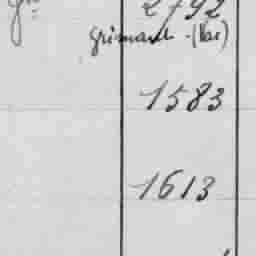 2792
Grimaud (Var)
1583
1613